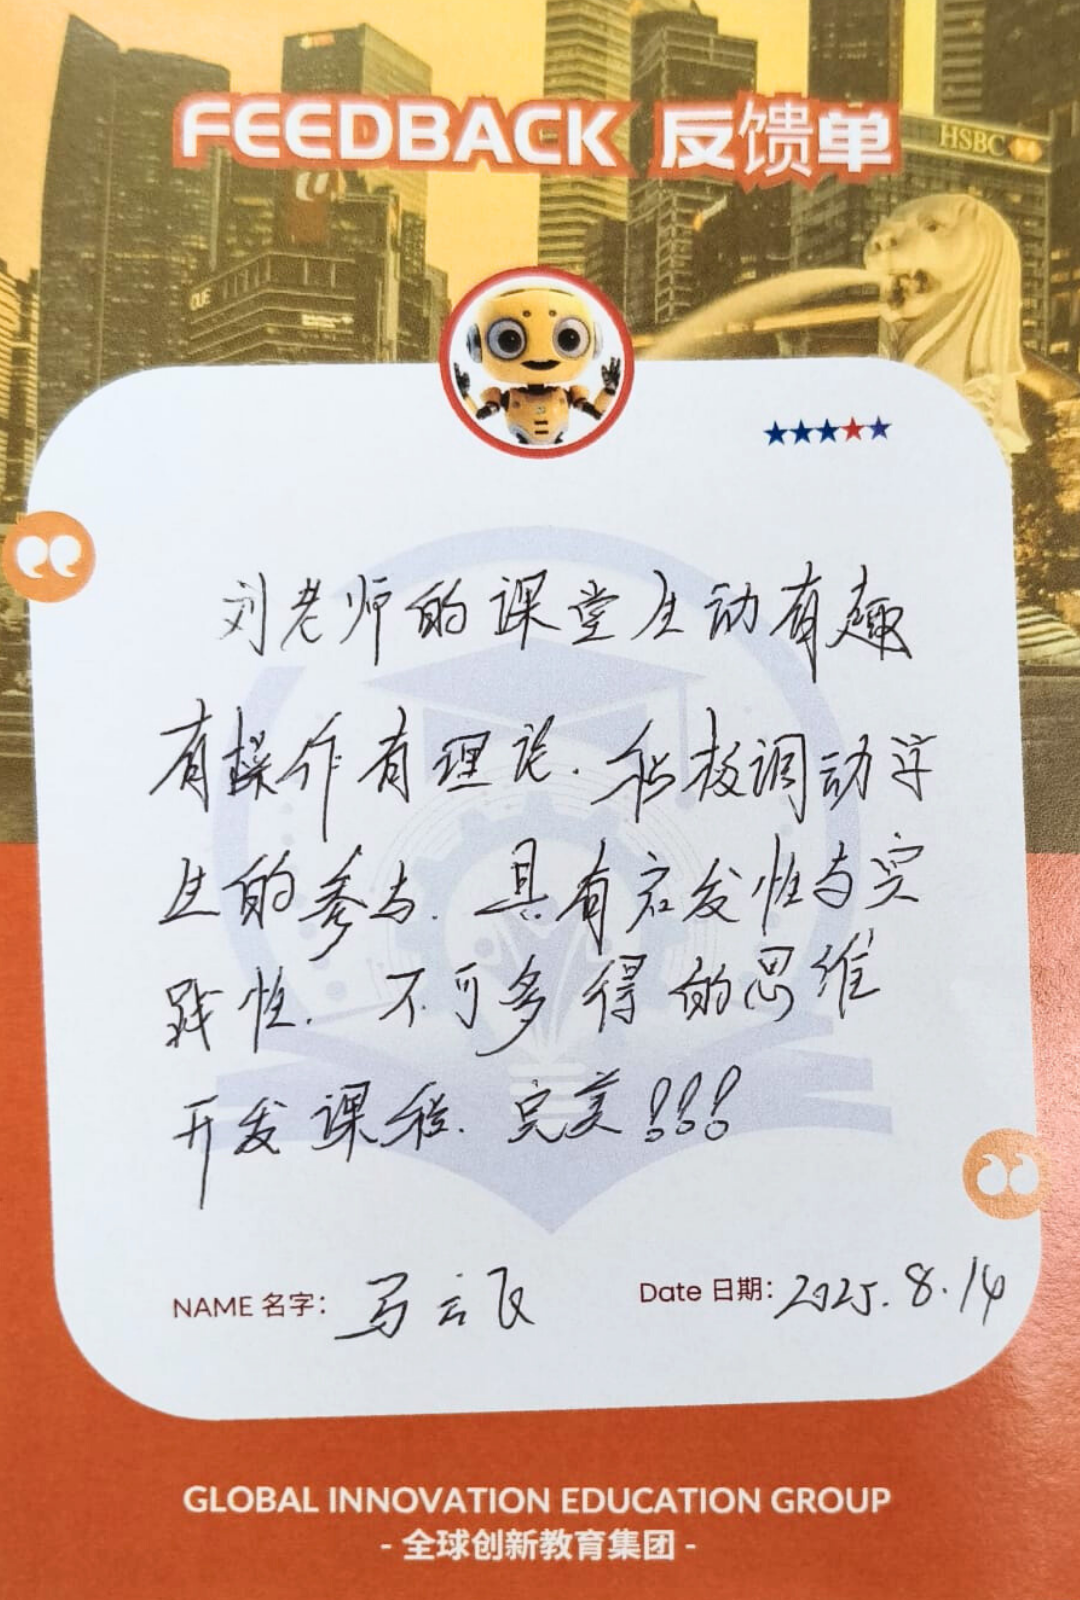 FEEDBACK 反馈单
HSBC
OUE
刘老师的课堂生动有趣
有操作有理论.积极调动学
生的参与.具有启发性与实
践性.不可多得的思维
开发课程.完美!!!
NAME 名字: 马云飞
Date 日期: 2025.8.14
GLOBAL INNOVATION EDUCATION GROUP
- 全球创新教育集团 -